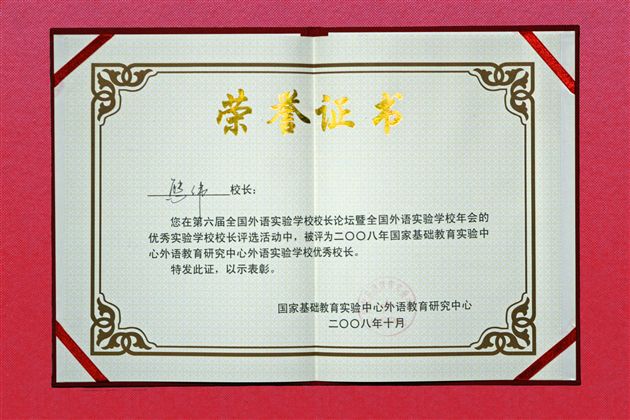 荣誉证书
熊伟 校长：
您在第六届全国外语实验学校校长论坛暨全国外语实验学校年会的
优秀实验学校校长评选活动中，被评为二〇〇八年国家基础教育实验中
心外语教育研究中心外语实验学校优秀校长。
特发此证，以示表彰。
国家基础教育实验中心外语教育研究中心
二〇〇八年十月